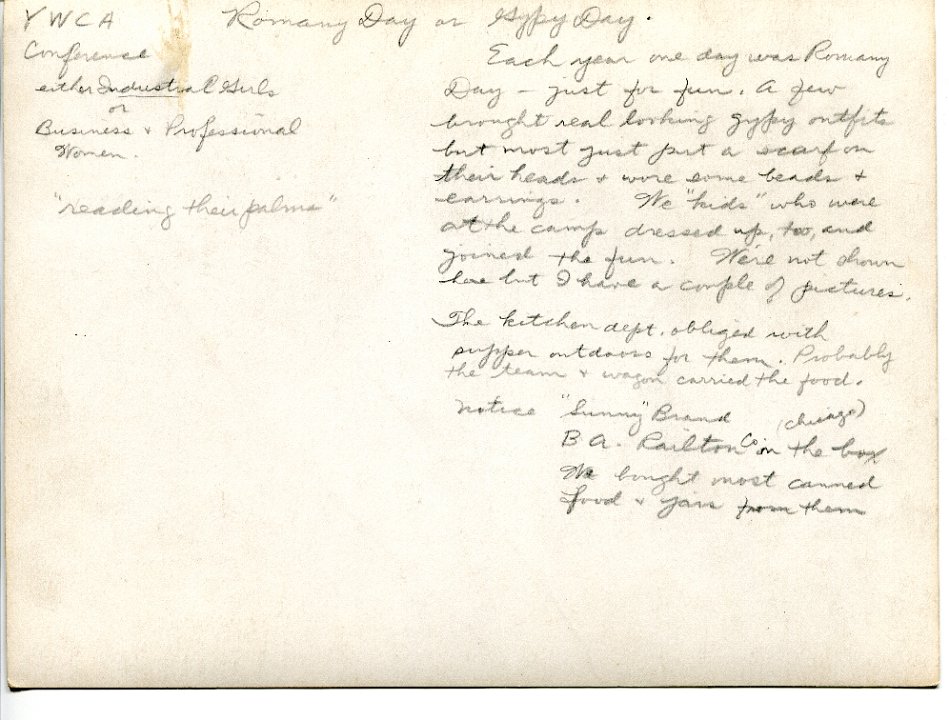 YWCA
Conference
either Industrial Girls
or
Business + Professional
Women.
"reading their palms"
Romany Day or Gypy Day.
Each year one day was Romany
Day - just for fun. A few
brought real looking gypsy outfits
but most just put a scarf on
their heads + wore some beads +
earrings. We "kids" who were
at the camp dressed up, too, and
joined the fun. We're not shown
here but I have a couple of pictures.
The kitchen dept. obliged with
supper outdoors for them. Probably
the team + wagon carried the food.
notice "Sunny" Brand
(Chicago)
B A. Railton Co. on the box.
We bought most canned
food + jars from them